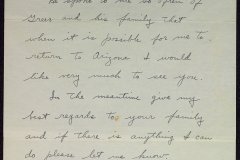 he spoke to me so often of
Greer and his family that
when it is possible for me to
return to Arizona I would
like very much to see you.
In the meantime give my
best regards to your family
and if there is anything I can
do please let me know.